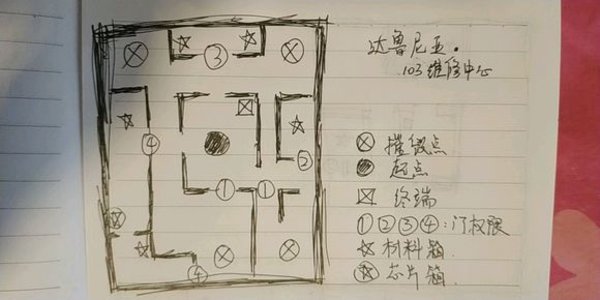 达鲁尼亚.
103维修中心
摧毁点
起点
终端
①②③④:门权限
材料箱
芯片箱.
③
④
②
①
①
④